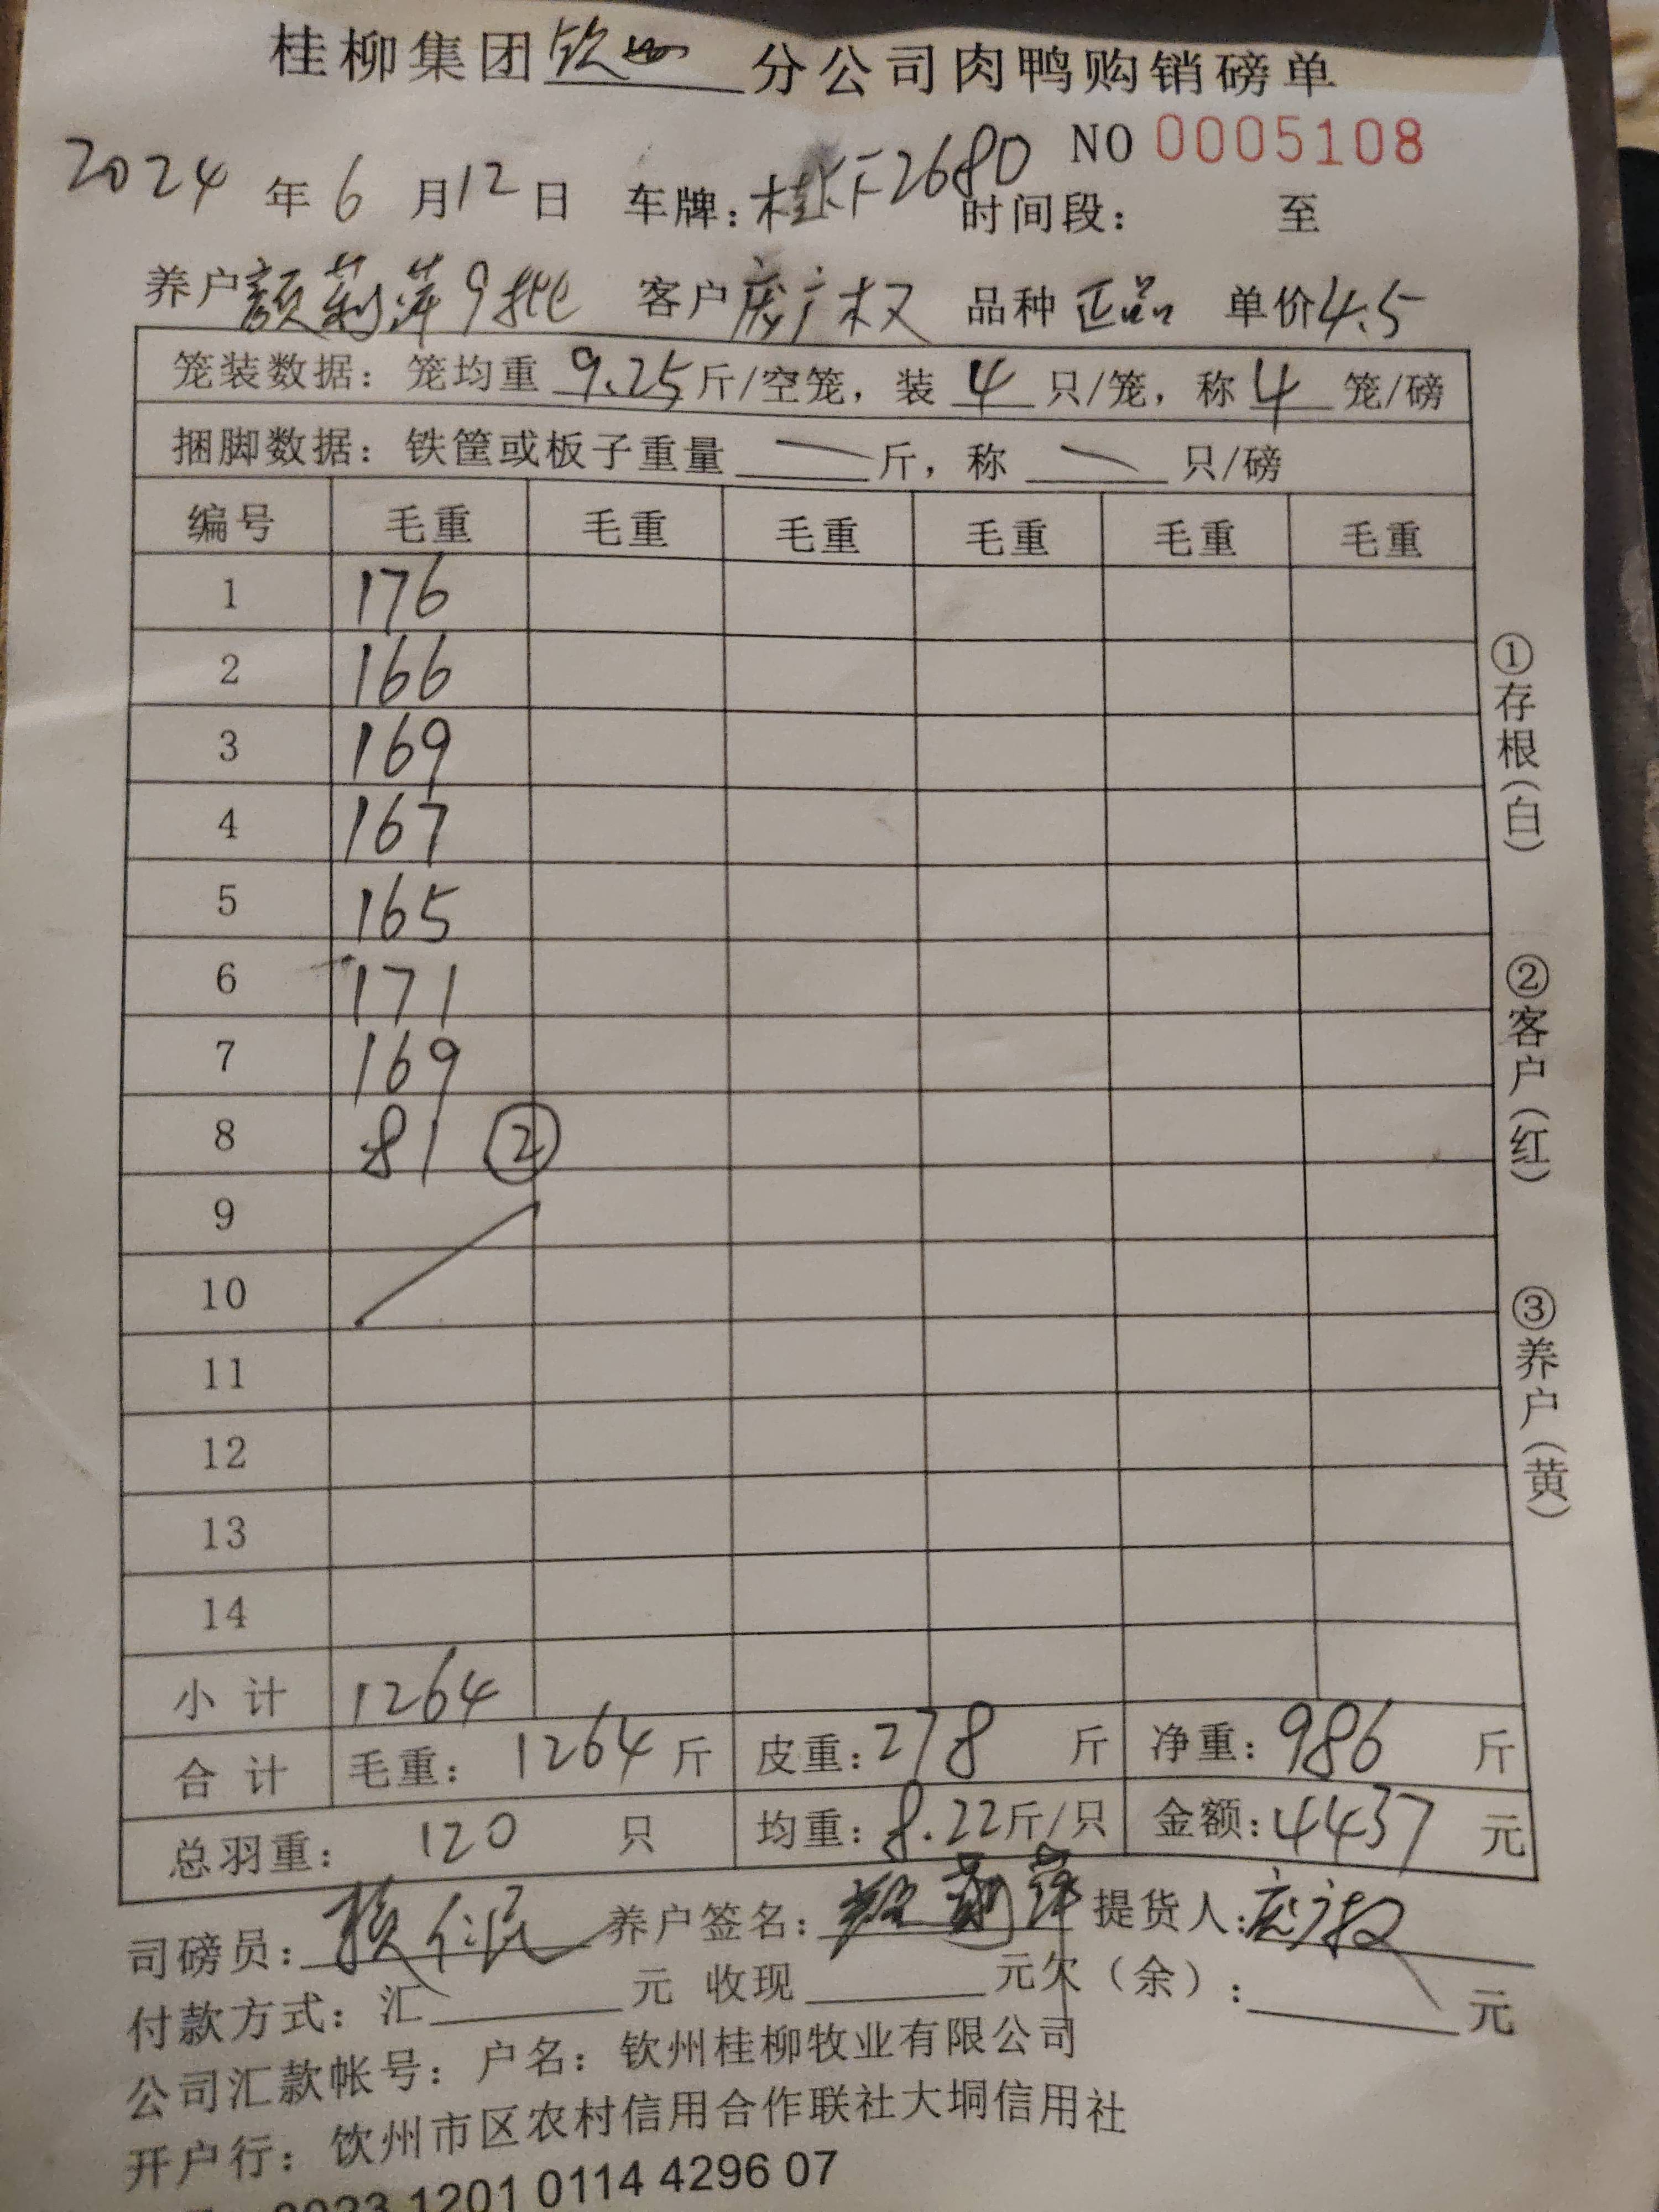 桂柳集团钦州分公司肉鸭购销磅单
NO 0005108
2024年6月12日 车牌:桂KF2680 时间段: 至
养户颜莉萍9批 客户庞广权 品种正品 单价4.5
笼装数据:笼均重9.25斤/空笼,装4只/笼,称4笼/磅
捆脚数据:铁筐或板子重量 — 斤,称 — 只/磅
编号 毛重 毛重 毛重 毛重 毛重 毛重
1 176
2 166
3 169
4 167
5 165
6 171
7 169
8 81 ②
9
10
11
12
13
14
小计 1264
合计 毛重:1264斤 皮重:278斤 净重:986斤
总羽重:120只 均重:8.22斤/只 金额:4437元
司磅员: 养户签名:颜莉萍 提货人:庞广权
付款方式:汇 元 收现 元欠(余): 元
公司汇款帐号:户名:钦州桂柳牧业有限公司
开户行:钦州市区农村信用合作联社大垌信用社
1201 0114 4296 07
①存根(白)
②客户(红)
③养户(黄)